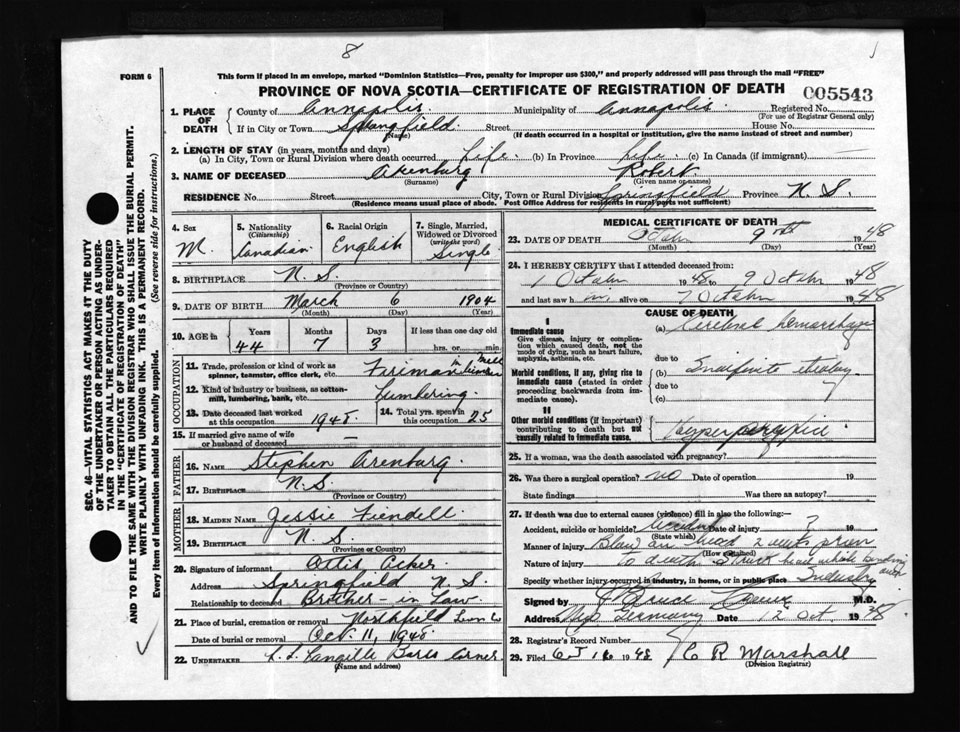 8
FORM 6
This form if placed in an envelope, marked "Dominion Statistics—Free, penalty for improper use $300," and properly addressed will pass through the mail "FREE"
PROVINCE OF NOVA SCOTIA—CERTIFICATE OF REGISTRATION OF DEATH
005543
1. PLACE OF DEATH
County of Annapolis. Municipality of Annapolis. Registered No.
(For use of Registrar General only)
If in City or Town Springfield Street House No.
(Name) (If death occurred in a hospital or institution, give the name instead of street and number)
2. LENGTH OF STAY (in years, months and days)
(a) In City, Town or Rural Division where death occurred Life. (b) In Province Life. (c) In Canada (if immigrant) —
3. NAME OF DECEASED Arenburg Robert.
(Surname) (Given name or names)
RESIDENCE No. Street City, Town or Rural Division Springfield Province N. S.
(Residence means usual place of abode. Post Office Address for residents in rural parts not sufficient)
4. Sex M.
5. Nationality (Citizenship) Canadian
6. Racial Origin English
7. Single, Married, Widowed or Divorced (write the word) Single
8. BIRTHPLACE N. S.
(Province or Country)
9. DATE OF BIRTH March 6 1904
(Month) (Day) (Year)
10. AGE in Years Months Days If less than one day old
44 7 3 hrs. or min.
OCCUPATION
11. Trade, profession or kind of work as spinner, teamster, office clerk, etc. Fireman in mill
12. Kind of industry or business, as cotton-mill, lumbering, bank, etc. Lumbering.
13. Date deceased last worked at this occupation 1948
14. Total yrs. spent in this occupation 25
15. If married give name of wife or husband of deceased —
FATHER
16. NAME Stephen Arenburg.
17. BIRTHPLACE N. S.
(Province or Country)
MOTHER
18. MAIDEN NAME Jessie Feindell.
19. BIRTHPLACE N. S.
(Province or Country)
20. Signature of informant Ottis Acker.
Address Springfield N. S.
Relationship to deceased Brother-in Law.
21. Place of burial, cremation or removal Northfield Lun Co
Date of burial or removal Oct. 11, 1948.
22. UNDERTAKER Langille Barss Corner.
(Name and address)
MEDICAL CERTIFICATE OF DEATH
23. DATE OF DEATH October 9 1948
(Month) (Day) (Year)
24. I HEREBY CERTIFY that I attended deceased from:
1 October 1948 to 9 October 1948
and last saw him alive on 7 October 1948
CAUSE OF DEATH
I
Immediate cause
Give disease, injury or complication which caused death, not the mode of dying, such as heart failure, asphyxia, asthenia, etc.
(a) Cerebral hemorrhage
due to
Morbid conditions, if any, giving rise to immediate cause (stated in order proceeding backwards from immediate cause).
(b) Indefinite etiology
due to
(c)
II
Other morbid conditions (if important) contributing to death but not causally related to immediate cause.
25. If a woman, was the death associated with pregnancy?
26. Was there a surgical operation? no Date of operation 19
State findings Was there an autopsy?
27. If death was due to external causes (violence) fill in also the following:—
Accident, suicide or homicide? Accident Date of injury ? 19
(State which)
Manner of injury Blow on head 2 weeks prior
(How sustained)
Nature of injury to death. Struck head while bending over
Specify whether injury occurred in industry, in home, or in public place Industry
Signed by Bruce M.D.
Address Germany Date 12 Oct. 1938
28. Registrar's Record Number
29. Filed Oct 16 1948 C R Marshall
(Division Registrar)
SEC. 46—VITAL STATISTICS ACT MAKES IT THE DUTY
OF THE UNDERTAKER OR PERSON ACTING AS UNDER-
TAKER TO OBTAIN ALL THE PARTICULARS REQUIRED
IN THE "CERTIFICATE OF REGISTRATION OF DEATH"
AND TO FILE THE SAME WITH THE DIVISION REGISTRAR WHO SHALL ISSUE THE BURIAL PERMIT.
WRITE PLAINLY WITH UNFADING INK. THIS IS A PERMANENT RECORD.
Every item of information should be carefully supplied. (See reverse side for instructions.)